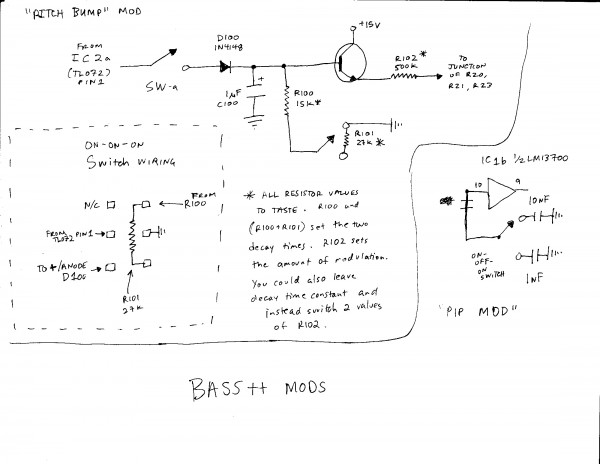 "PITCH BUMP" MOD
FROM
IC2a
(TL072)
PIN 1
SW-a
D100
1N4148
+
1µF
C100
R100
15K*
+15V
R102*
500K
TO
JUNCTION
OF R20,
R21, R23
R101
27K *
ON-ON-ON
Switch WIRING
N/C
FROM
R100
FROM
TL072 PIN 1
TO +/ANODE
D100
R101
27K
* ALL RESISTOR VALUES
TO TASTE. R100 and
(R100+R101) set the two
decay times. R102 sets
the amount of modulation.
You could also leave
decay time constant and
instead switch 2 values
of R102.
IC1b ½LM13700
10
9
10NF
ON-
OFF-
ON
SWITCH
1NF
"PIP MOD"
BASS++ MODS